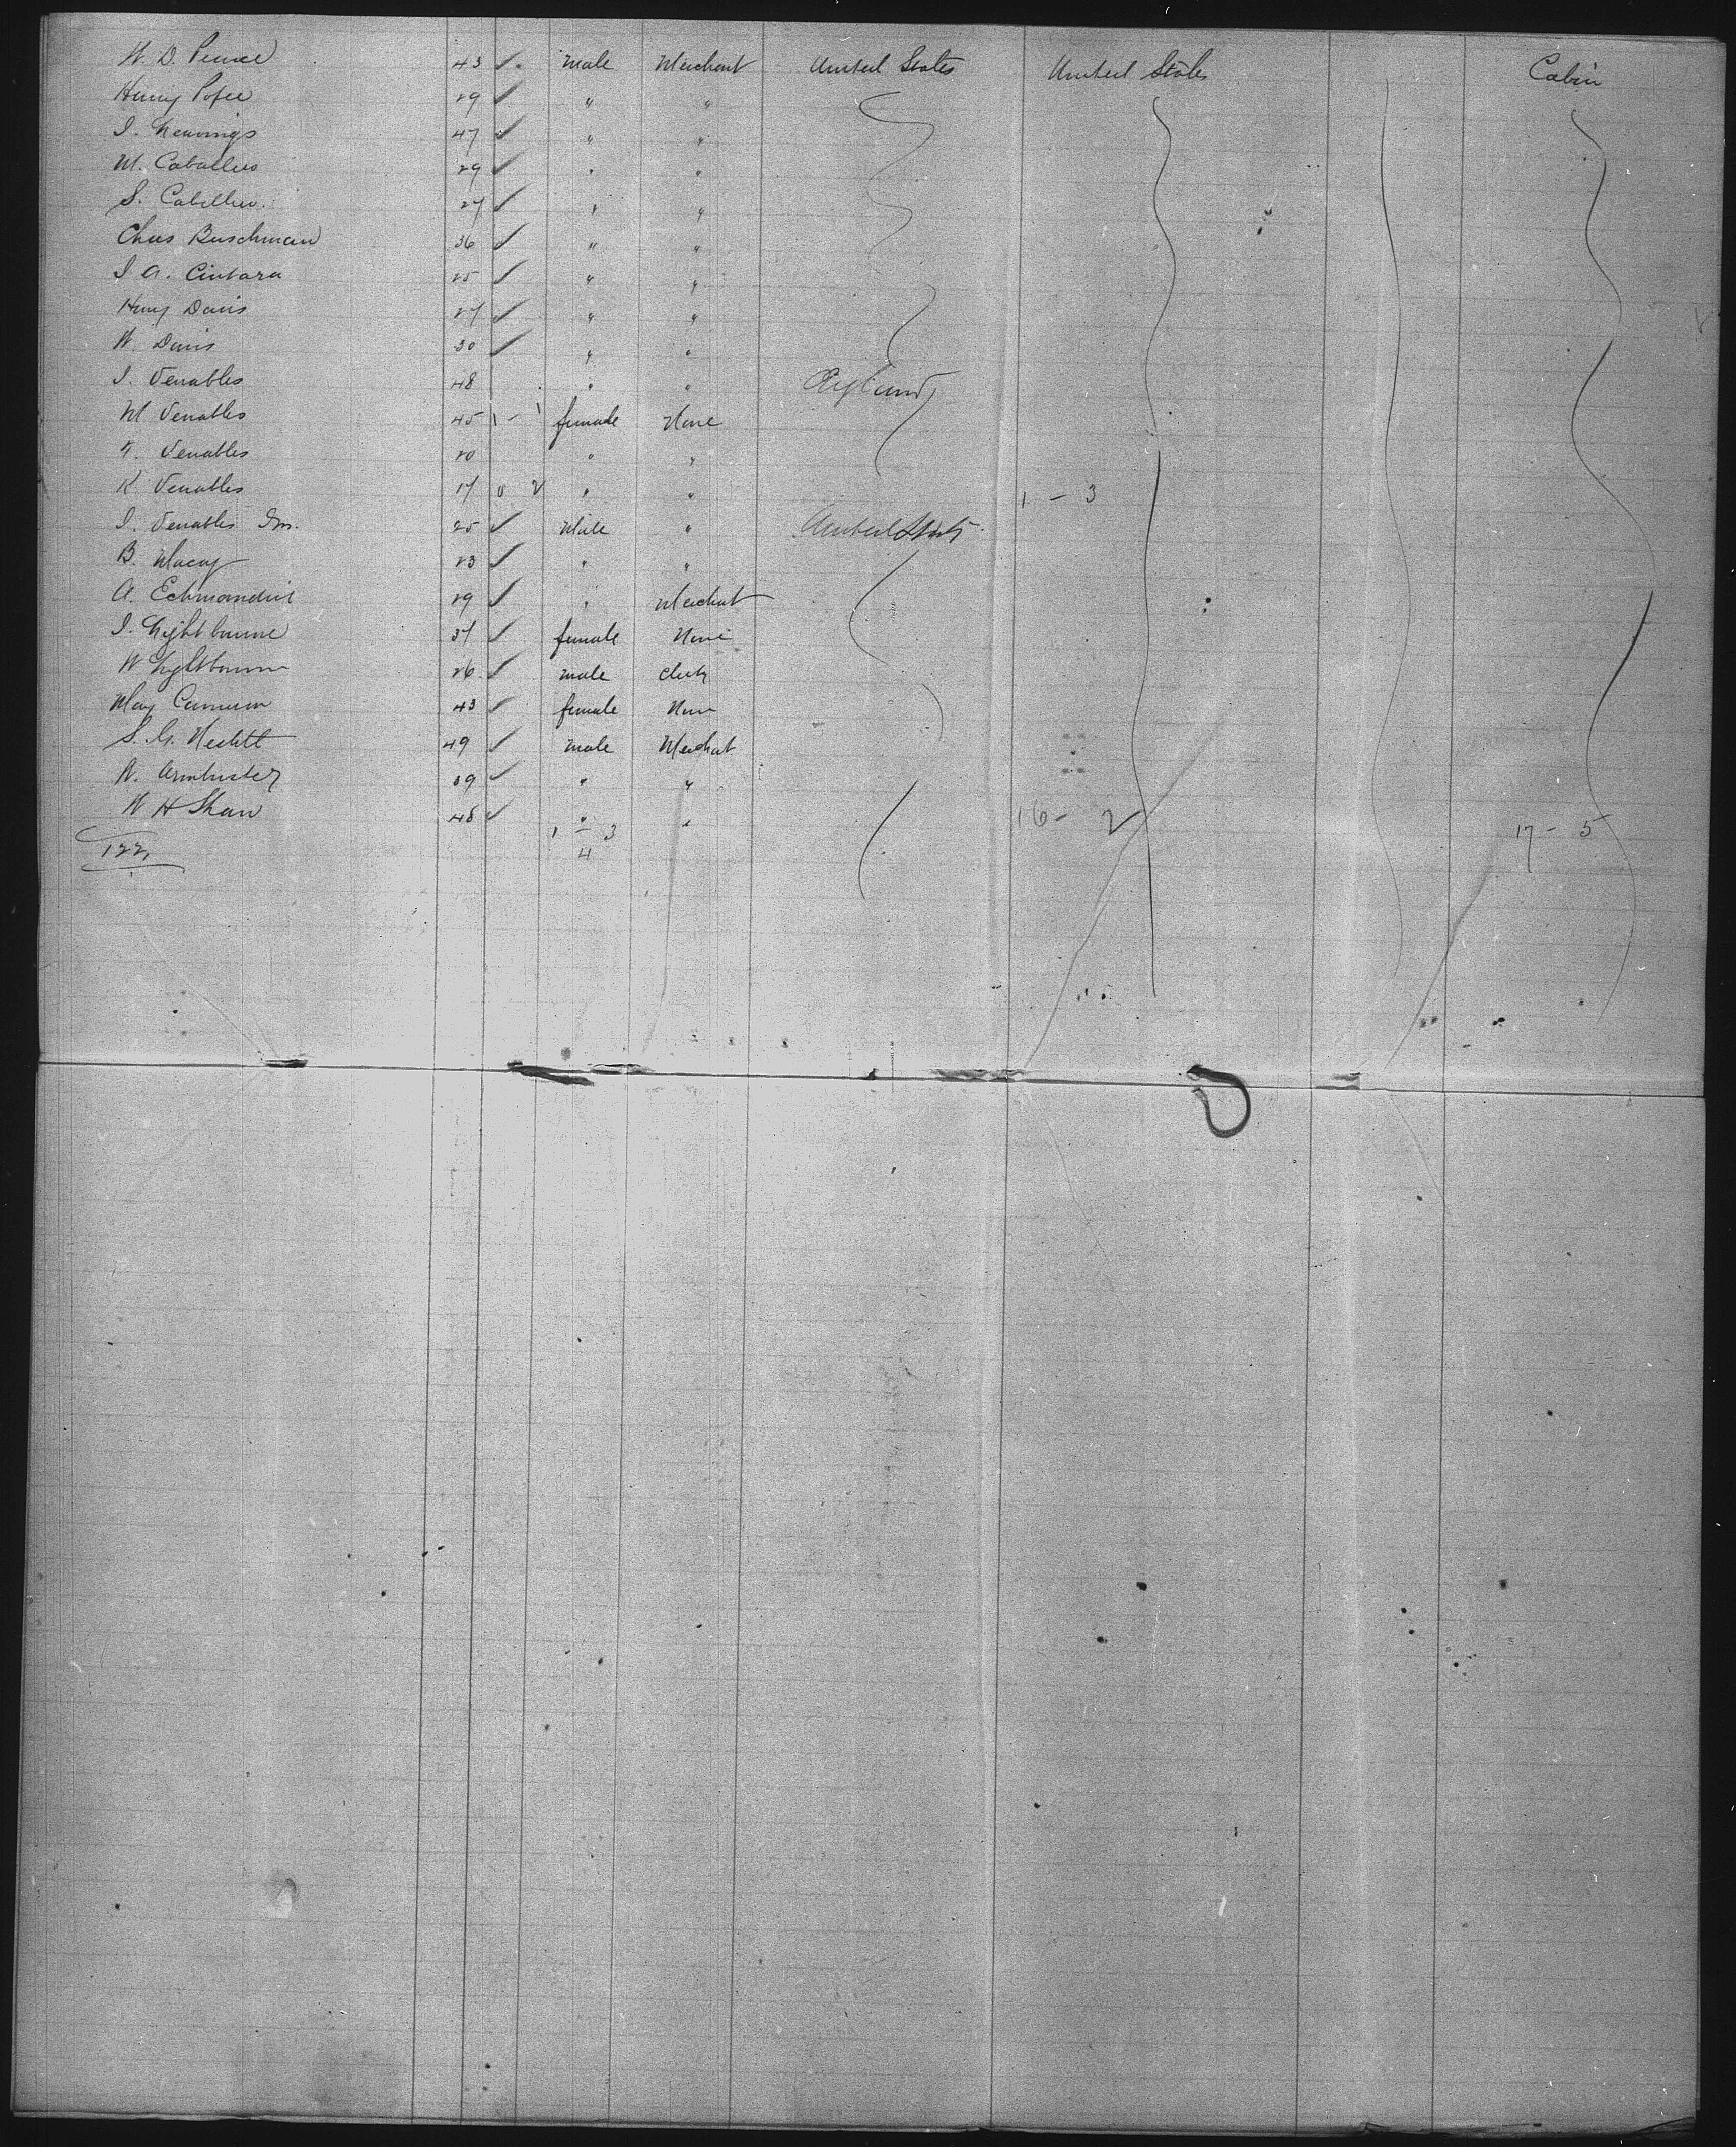 W. D. Pearce 43 ✓ male Merchant United States United States Cabin
Henry Pofee 29 ✓ " "
J. Hennings 47 ✓ " "
M. Caballero 29 ✓ " "
S. Cabellero. 27 ✓ " "
Chas Buschman 36 ✓ " "
J A. Cintara 25 ✓ " "
Henry Davis 27 ✓ " "
W. Davis 30 ✓ " "
J. Venables 48 " " England
M Venables 45 1 - 1 female None
F. Venables 20 " "
K Venables 17 0 2 " " 1 - 3
J. Venables Jn. 25 ✓ Male " United States
B. Macoy 23 ✓ " "
A. 29 ✓ " Merchat
J. Lightbourne 37 ✓ female None
W Lightbourn 26 ✓ male clerk
May Cameron 43 ✓ female None
S. G. 49 ✓ male Merchat
W. Armbuster 39 ✓ " "
W H Shaw 48 ✓ " " 16 - 2
122, 1 - 3 17 - 5
4